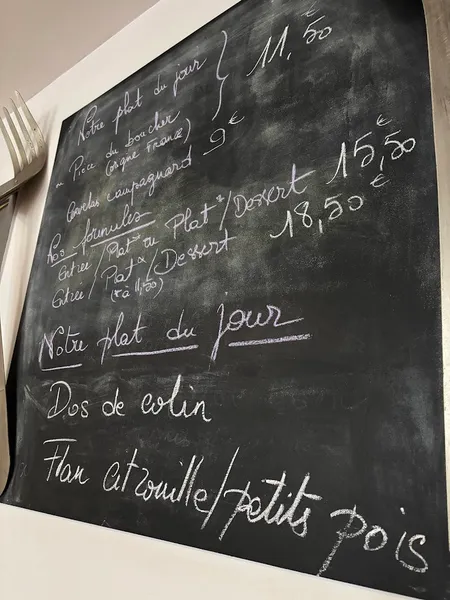 Notre plat du jour } 11,50 €
ou Pièce du boucher
(origine France)
campagnard 9 €
Nos formules
Entrée / Plat* ou Plat* / Dessert 15,50 €
Entrée / Plat* / Dessert 18,50 €
(* à 11,50)
Notre plat du jour
Dos de colin
Flan citrouille/petits pois